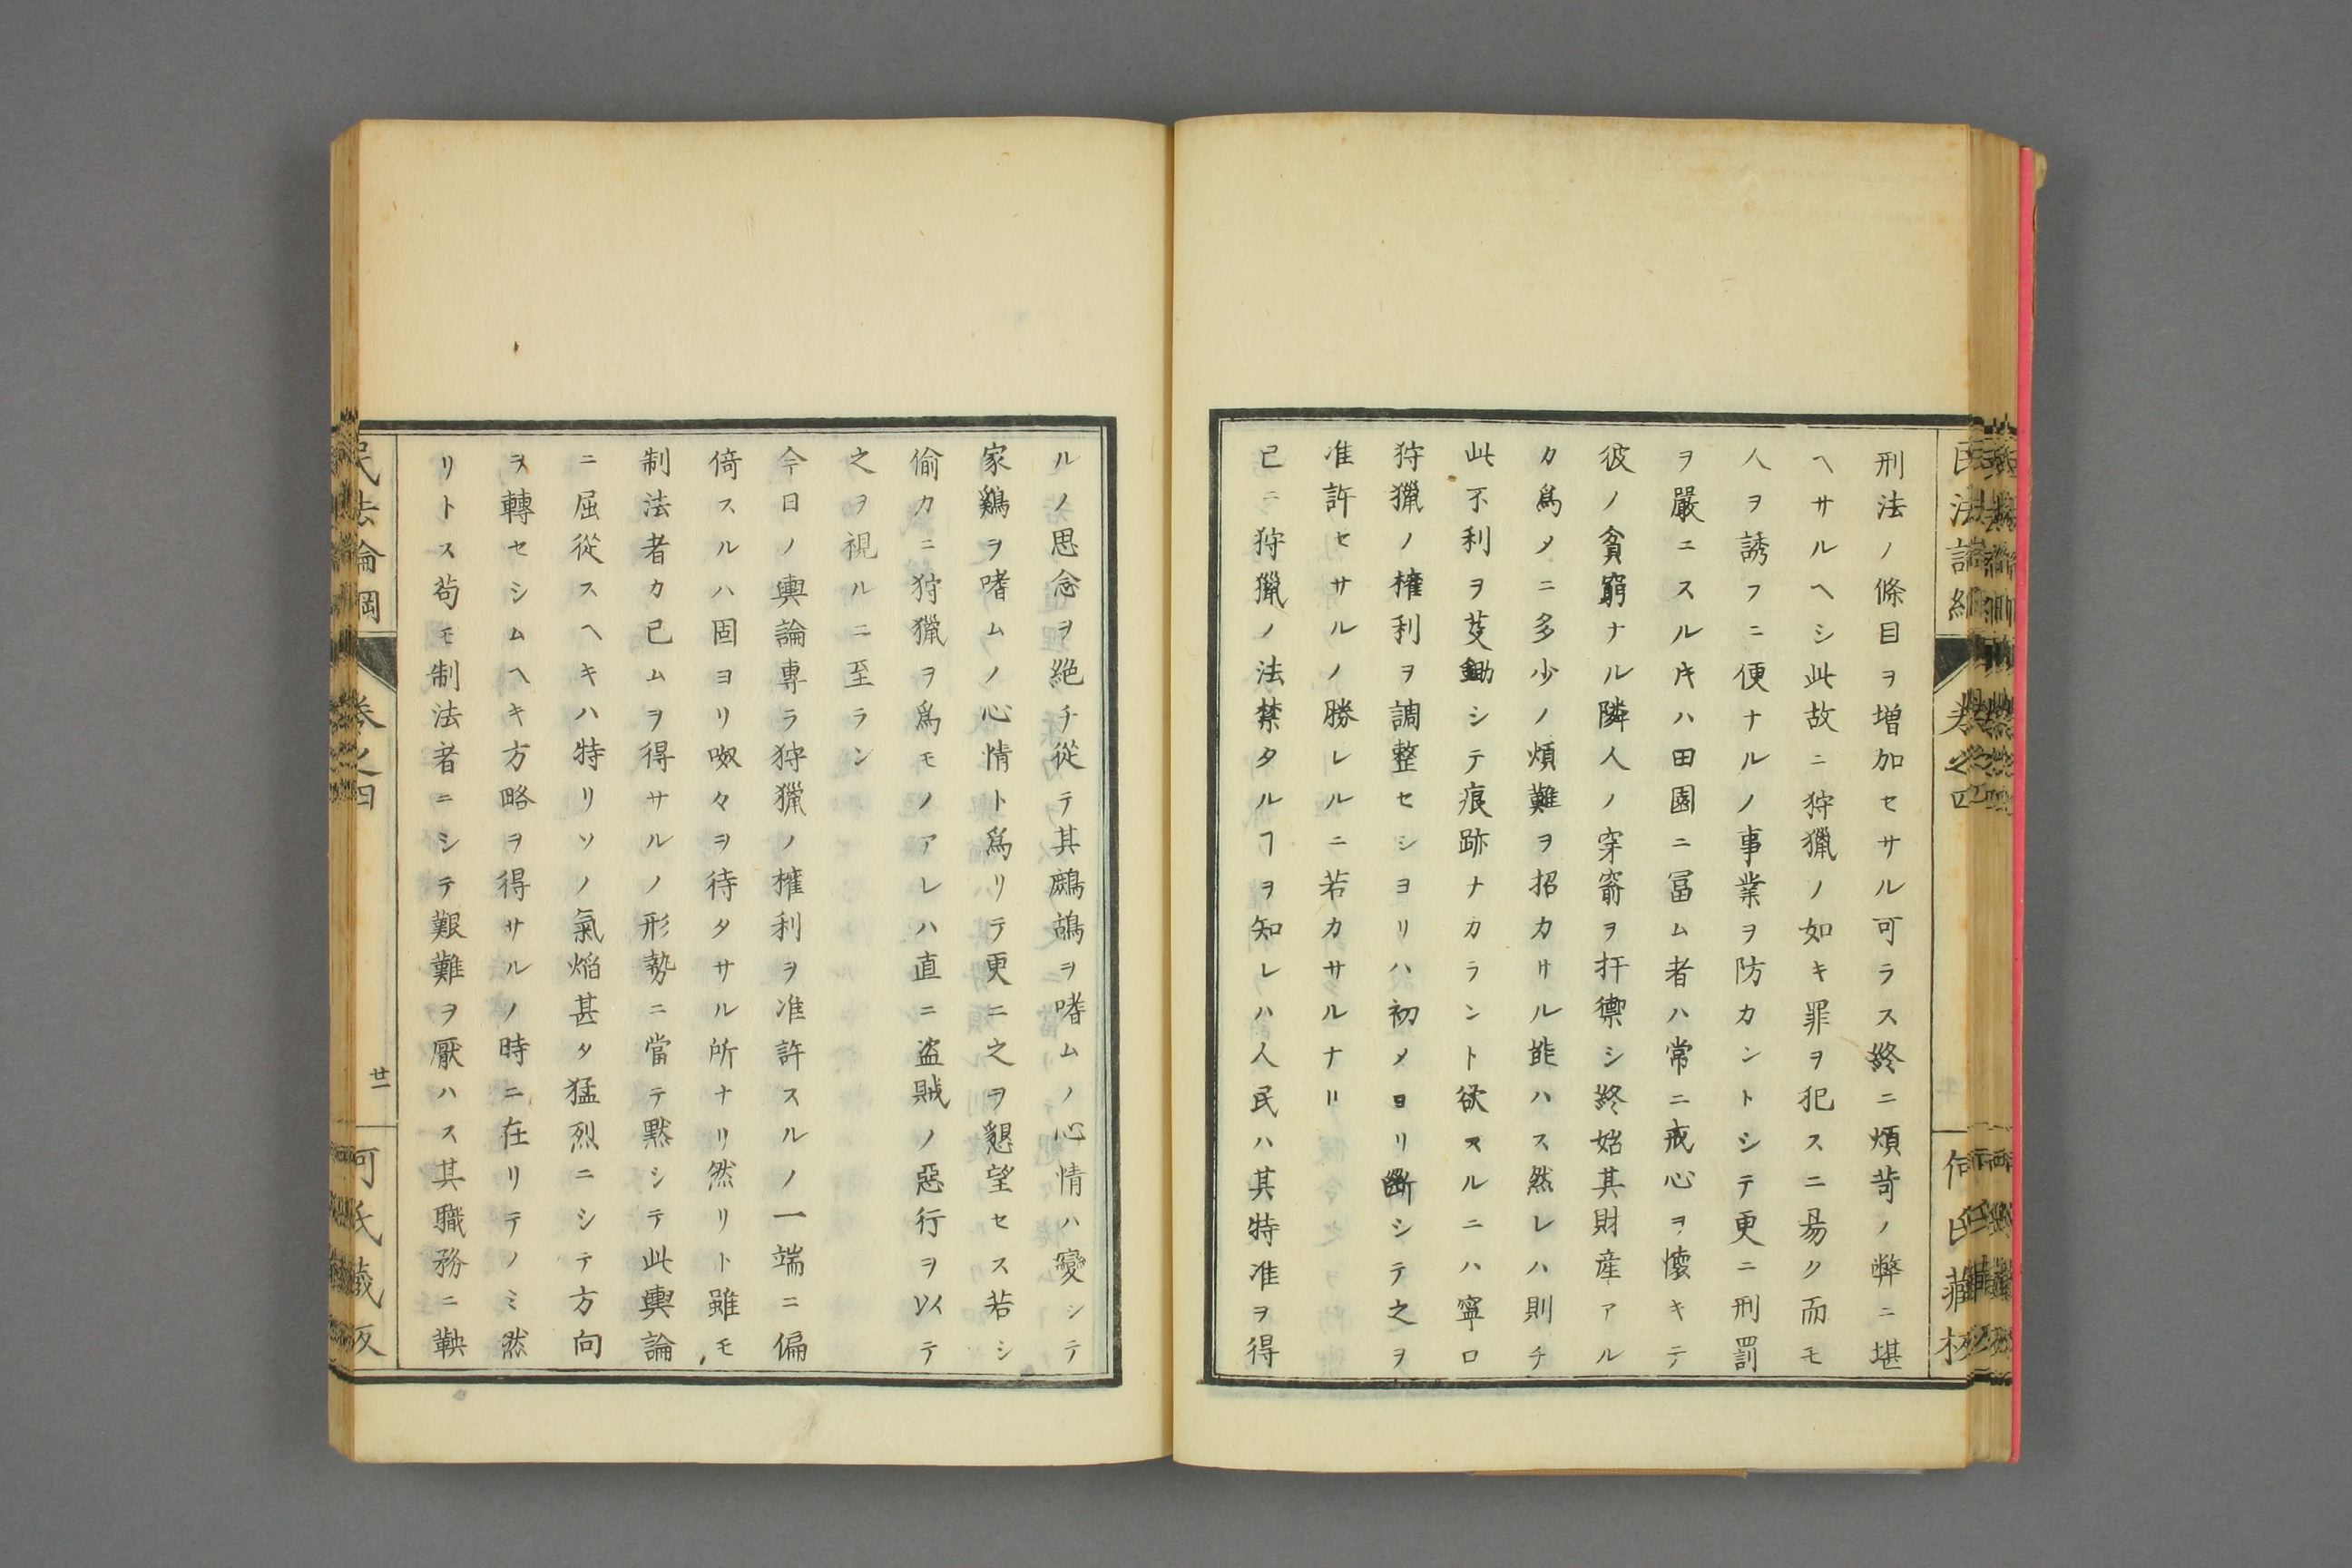 刑法ノ條目ヲ増加セサル可ラス終ニ煩苛ノ弊ニ堪
ヘサルヘシ此故ニ狩獵ノ如キ罪ヲ犯スニ易ク而モ
人ヲ誘フニ便ナルノ事業ヲ防カントシテ更ニ刑罰
ヲ嚴ニスルキハ田園ニ冨ム者ハ常ニ戒心ヲ懷キテ
彼ノ貧窮ナル隣人ノ穿窬ヲ扞禦シ終始其財産アル
カ爲メニ多少ノ煩難ヲ招カサル能ハス然レハ則チ
此不利ヲ芟鋤シテ痕跡ナカラント欲スルニハ寧ロ
狩獵ノ權利ヲ調整セシヨリハ初メヨリ斷シテ之ヲ
准許セサルノ勝レルニ若カサルナリ
已ニ狩獵ノ法禁タルヿヲ知レハ人民ハ其特准ヲ得
ルノ思念ヲ絶チ從テ其鷓鴣ヲ嗜ムノ心情ハ變シテ
家鷄ヲ嗜ムノ心情ト爲リテ更ニ之ヲ懇望セス若シ
偷カニ狩獵ヲ爲モノアレハ直ニ盗賊ノ惡行ヲ以テ
之ヲ視ルニ至ラン
今日ノ輿論專ラ狩獵ノ權利ヲ准許スルノ一端ニ偏
倚スルハ固ヨリ呶々ヲ待タサル所ナリ然リト雖モ
制法者カ已ムヲ得サルノ形勢ニ當テ黙シテ此輿論
ニ屈從スヘキハ特リソノ氣焰甚タ猛烈ニシテ方向
ヲ轉セシムヘキ方略ヲ得サルノ時ニ在リテノミ然
リトス苟モ制法者ニシテ艱難ヲ厭ハス其職務ニ鞅
民法論綱
卷之四
廿一
何氏藏板